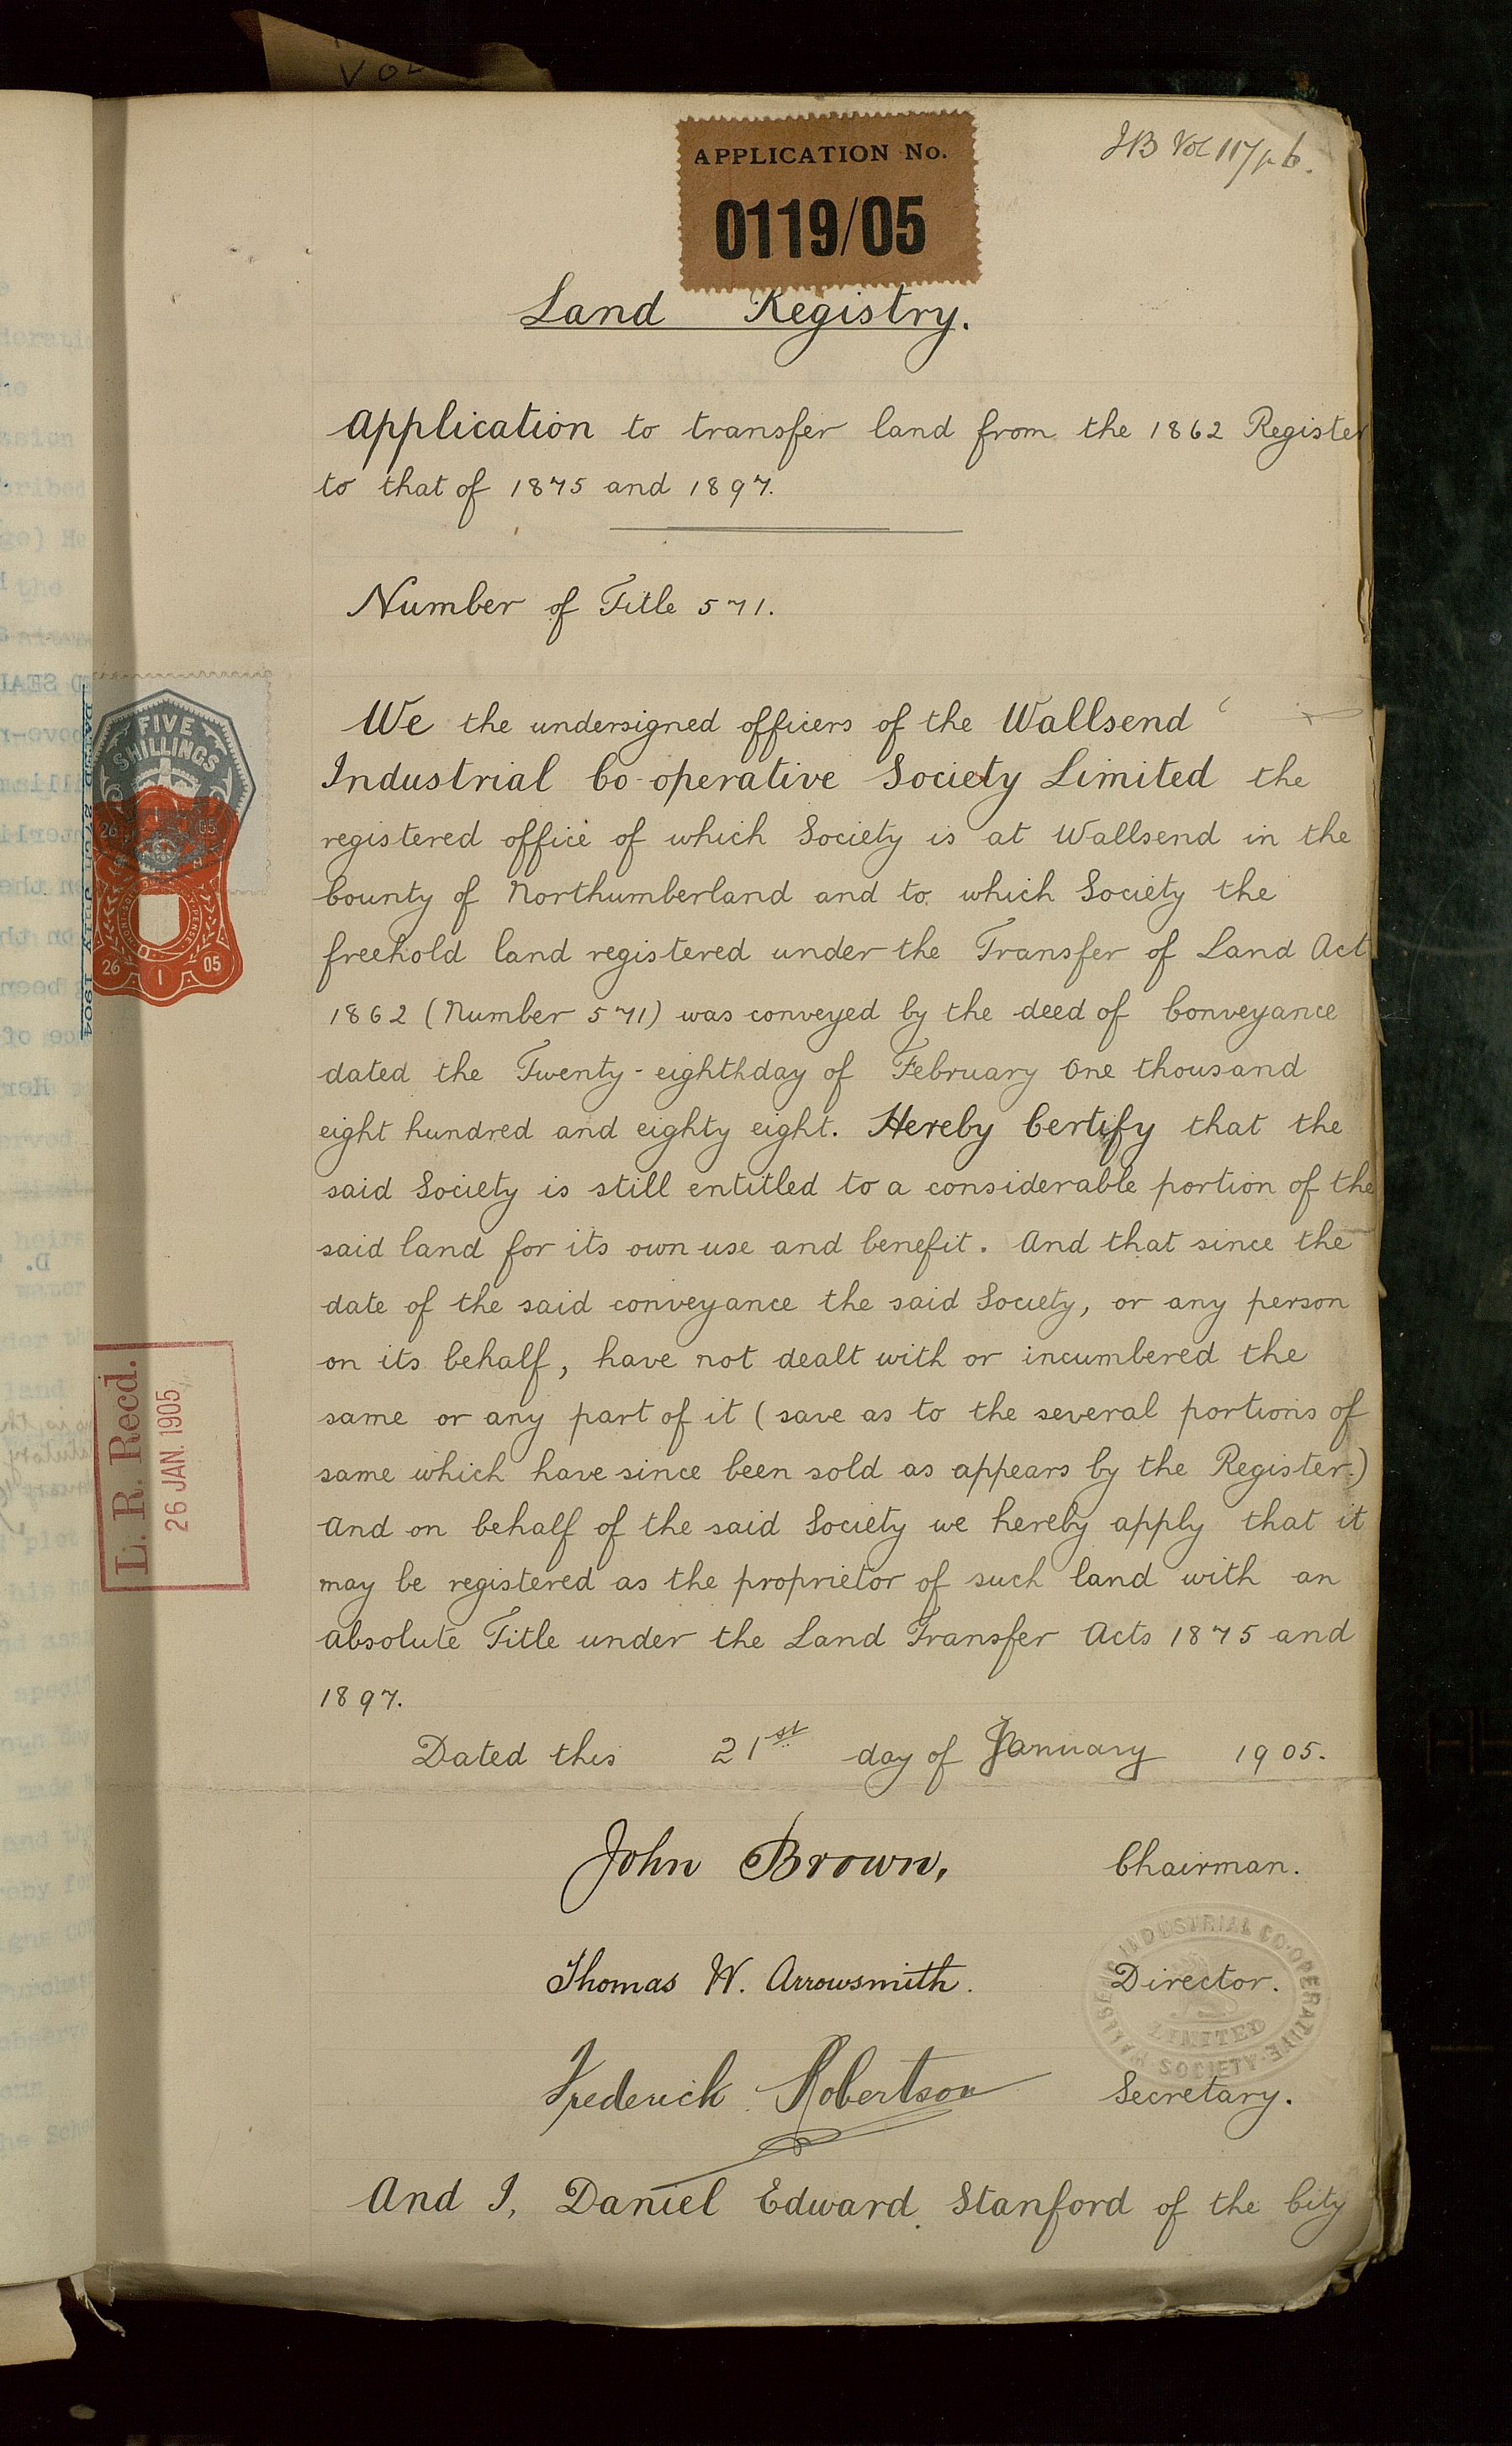 VOL
JB Vol 117/p 6.
APPLICATION No.
0119/05
Land Registry.
Application to transfer land from the 1862 Register
to that of 1875 and 1897.
Number of Title 571.
We the undersigned officers of the Wallsend
Industrial Co-operative Society Limited the
registered office of which Society is at Wallsend in the
County of Northumberland and to which Society the
freehold land registered under the Transfer of Land Act
1862 (Number 571) was conveyed by the deed of Conveyance
dated the Twenty-eighthday of February One thousand
eight hundred and eighty eight. Hereby Certify that the
said Society is still entitled to a considerable portion of the
said land for its own use and benefit. And that since the
date of the said conveyance the said Society, or any person
on its behalf, have not dealt with or incumbered the
same or any part of it (save as to the several portions of
same which have since been sold as appears by the Register.)
And on behalf of the said Society we hereby apply that it
may be registered as the proprietor of such land with an
absolute Title under the Land Transfer Acts 1875 and
1897.
Dated this 21st day of January 1905.
John Brown, Chairman.
Thomas W. Arrowsmith. Director.
Frederick Robertson Secretary.
And I, Daniel Edward Stanford of the City
FIVE
SHILLINGS
26 1 05
26 1 05
L. R. Recd.
26 JAN. 1905
WALLSEND INDUSTRIAL CO-OPERATIVE SOCIETY
LIMITED
DATED 27th July 1904